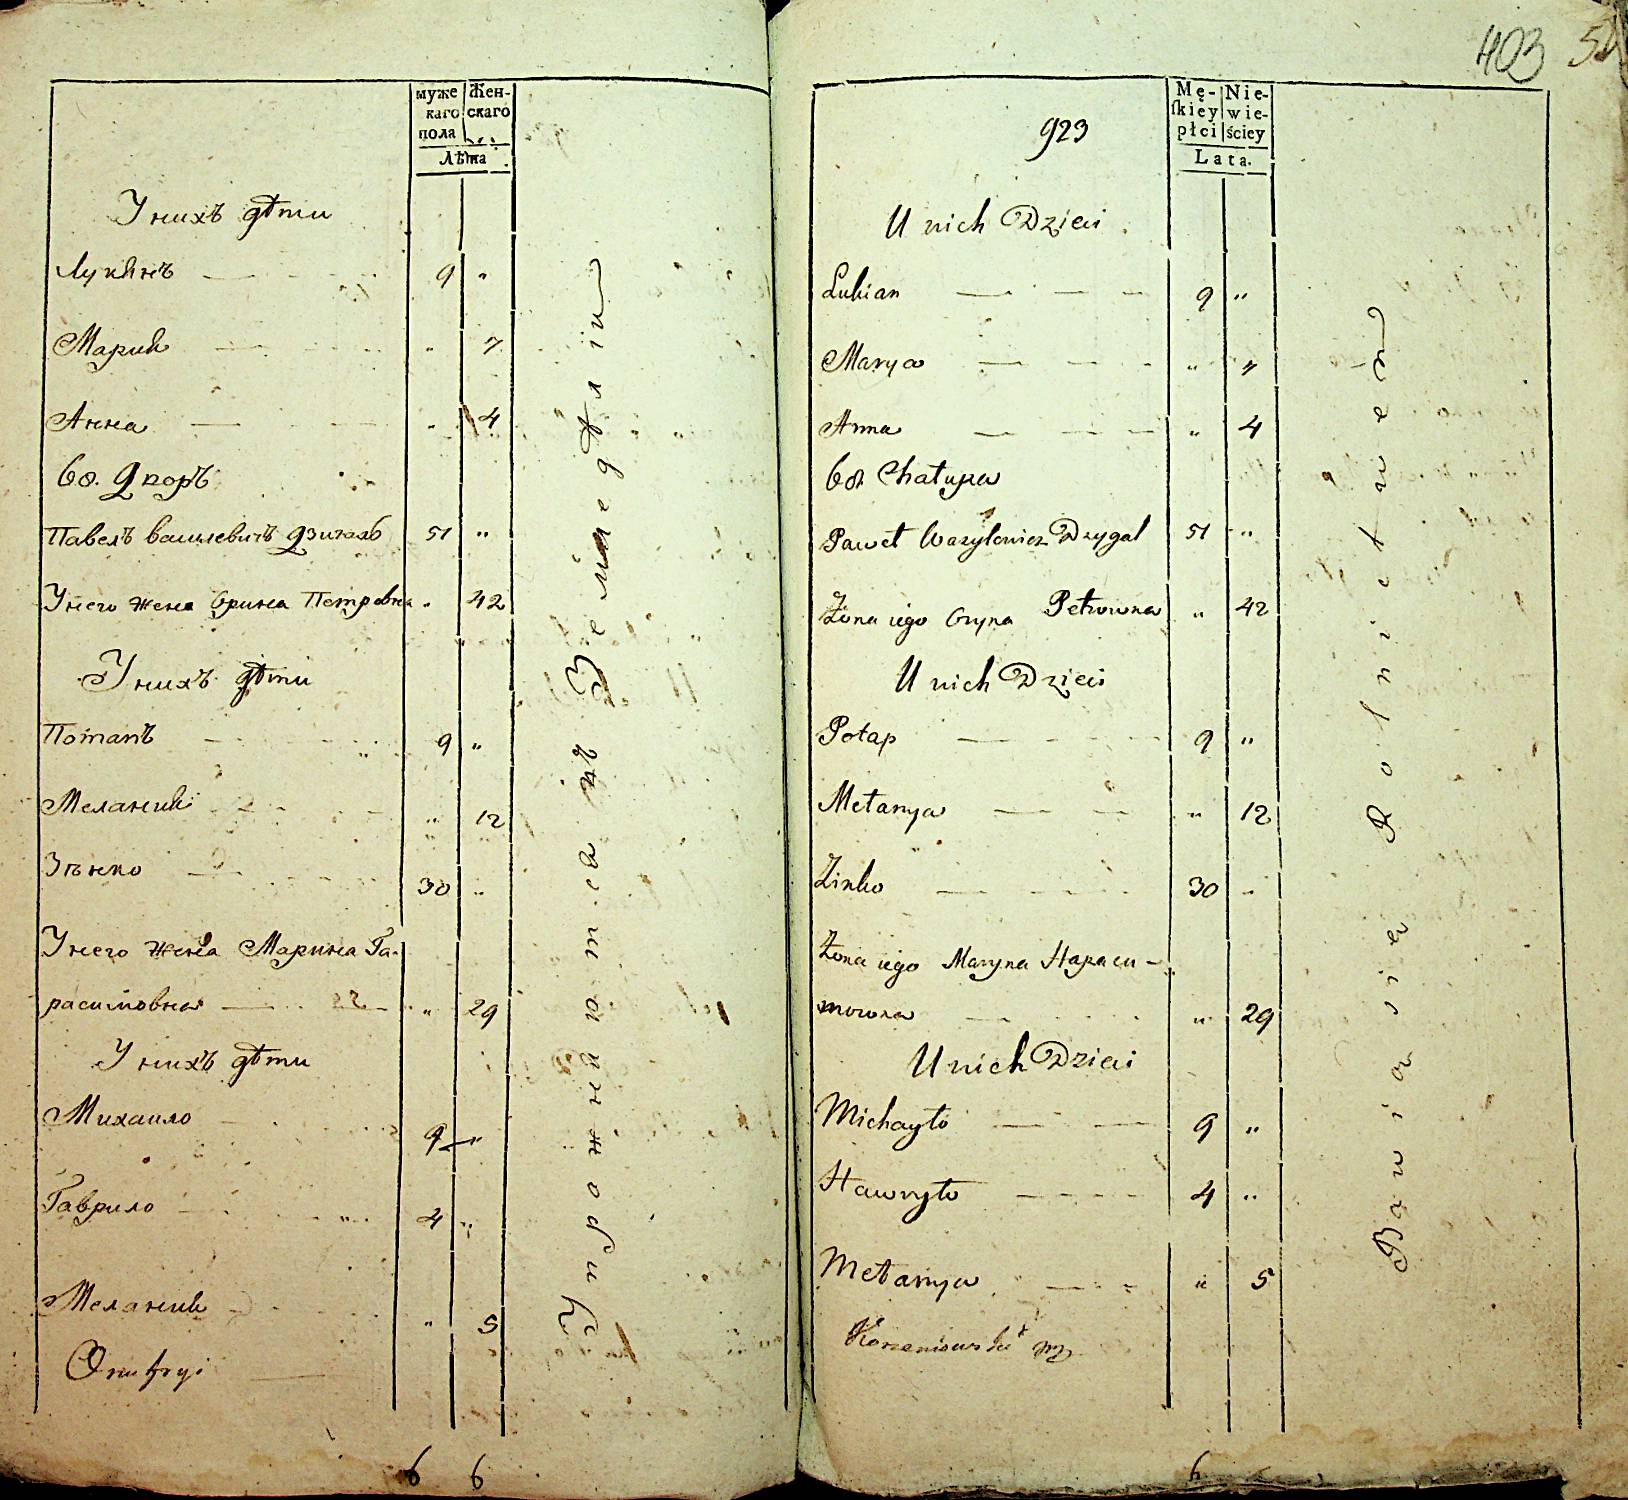 муже
каго
пола
Жен-
скаго
Лѣта
У нихъ дѣти
Лукѣнъ 9 "
Мариѣ " 7
Анна " 4
68. Дворъ
Павелъ Василевичъ Дзигалъ 51 "
У него жена Орина Петровна " 42
У нихъ дѣти
Потапъ 9 "
Меланиѣ " 12
Зѣнко 30 "
У него жена Марина Га-
расимовна " 29
У нихъ дѣти
Михаило 9 "
Гаврило 4 "
Меланиѣ " 5
Onufryi
6 6
Упрожнѣютсѧ въ Земледѣліи
403
923
Mę-
skiey
płci
Nie-
wie-
ściey
Lata.
U nich Dzieci
Lukian 9 "
Marya " 7
Anna " 4
68. Chałupa
Paweł Wazylewicz Dzygal 51 "
Żona iego Oryna Petrowna " 42
U nich Dzieci
Potap 9 "
Mełanya " 12
Zinko 30 "
Żona iego Maryna Harasi-
mowna " 29
U nich Dzieci
Michayło 9 "
Hawryło 4 "
Mełanya " 5
Korzeniowski
Bawią się Rolnictwem